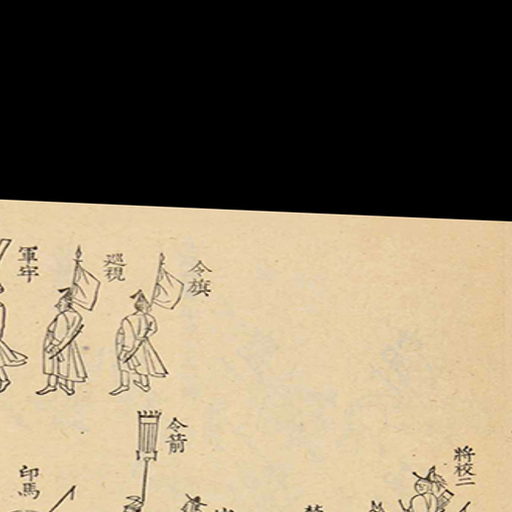 令旗
巡視
軍牢
將校二
令箭
印馬